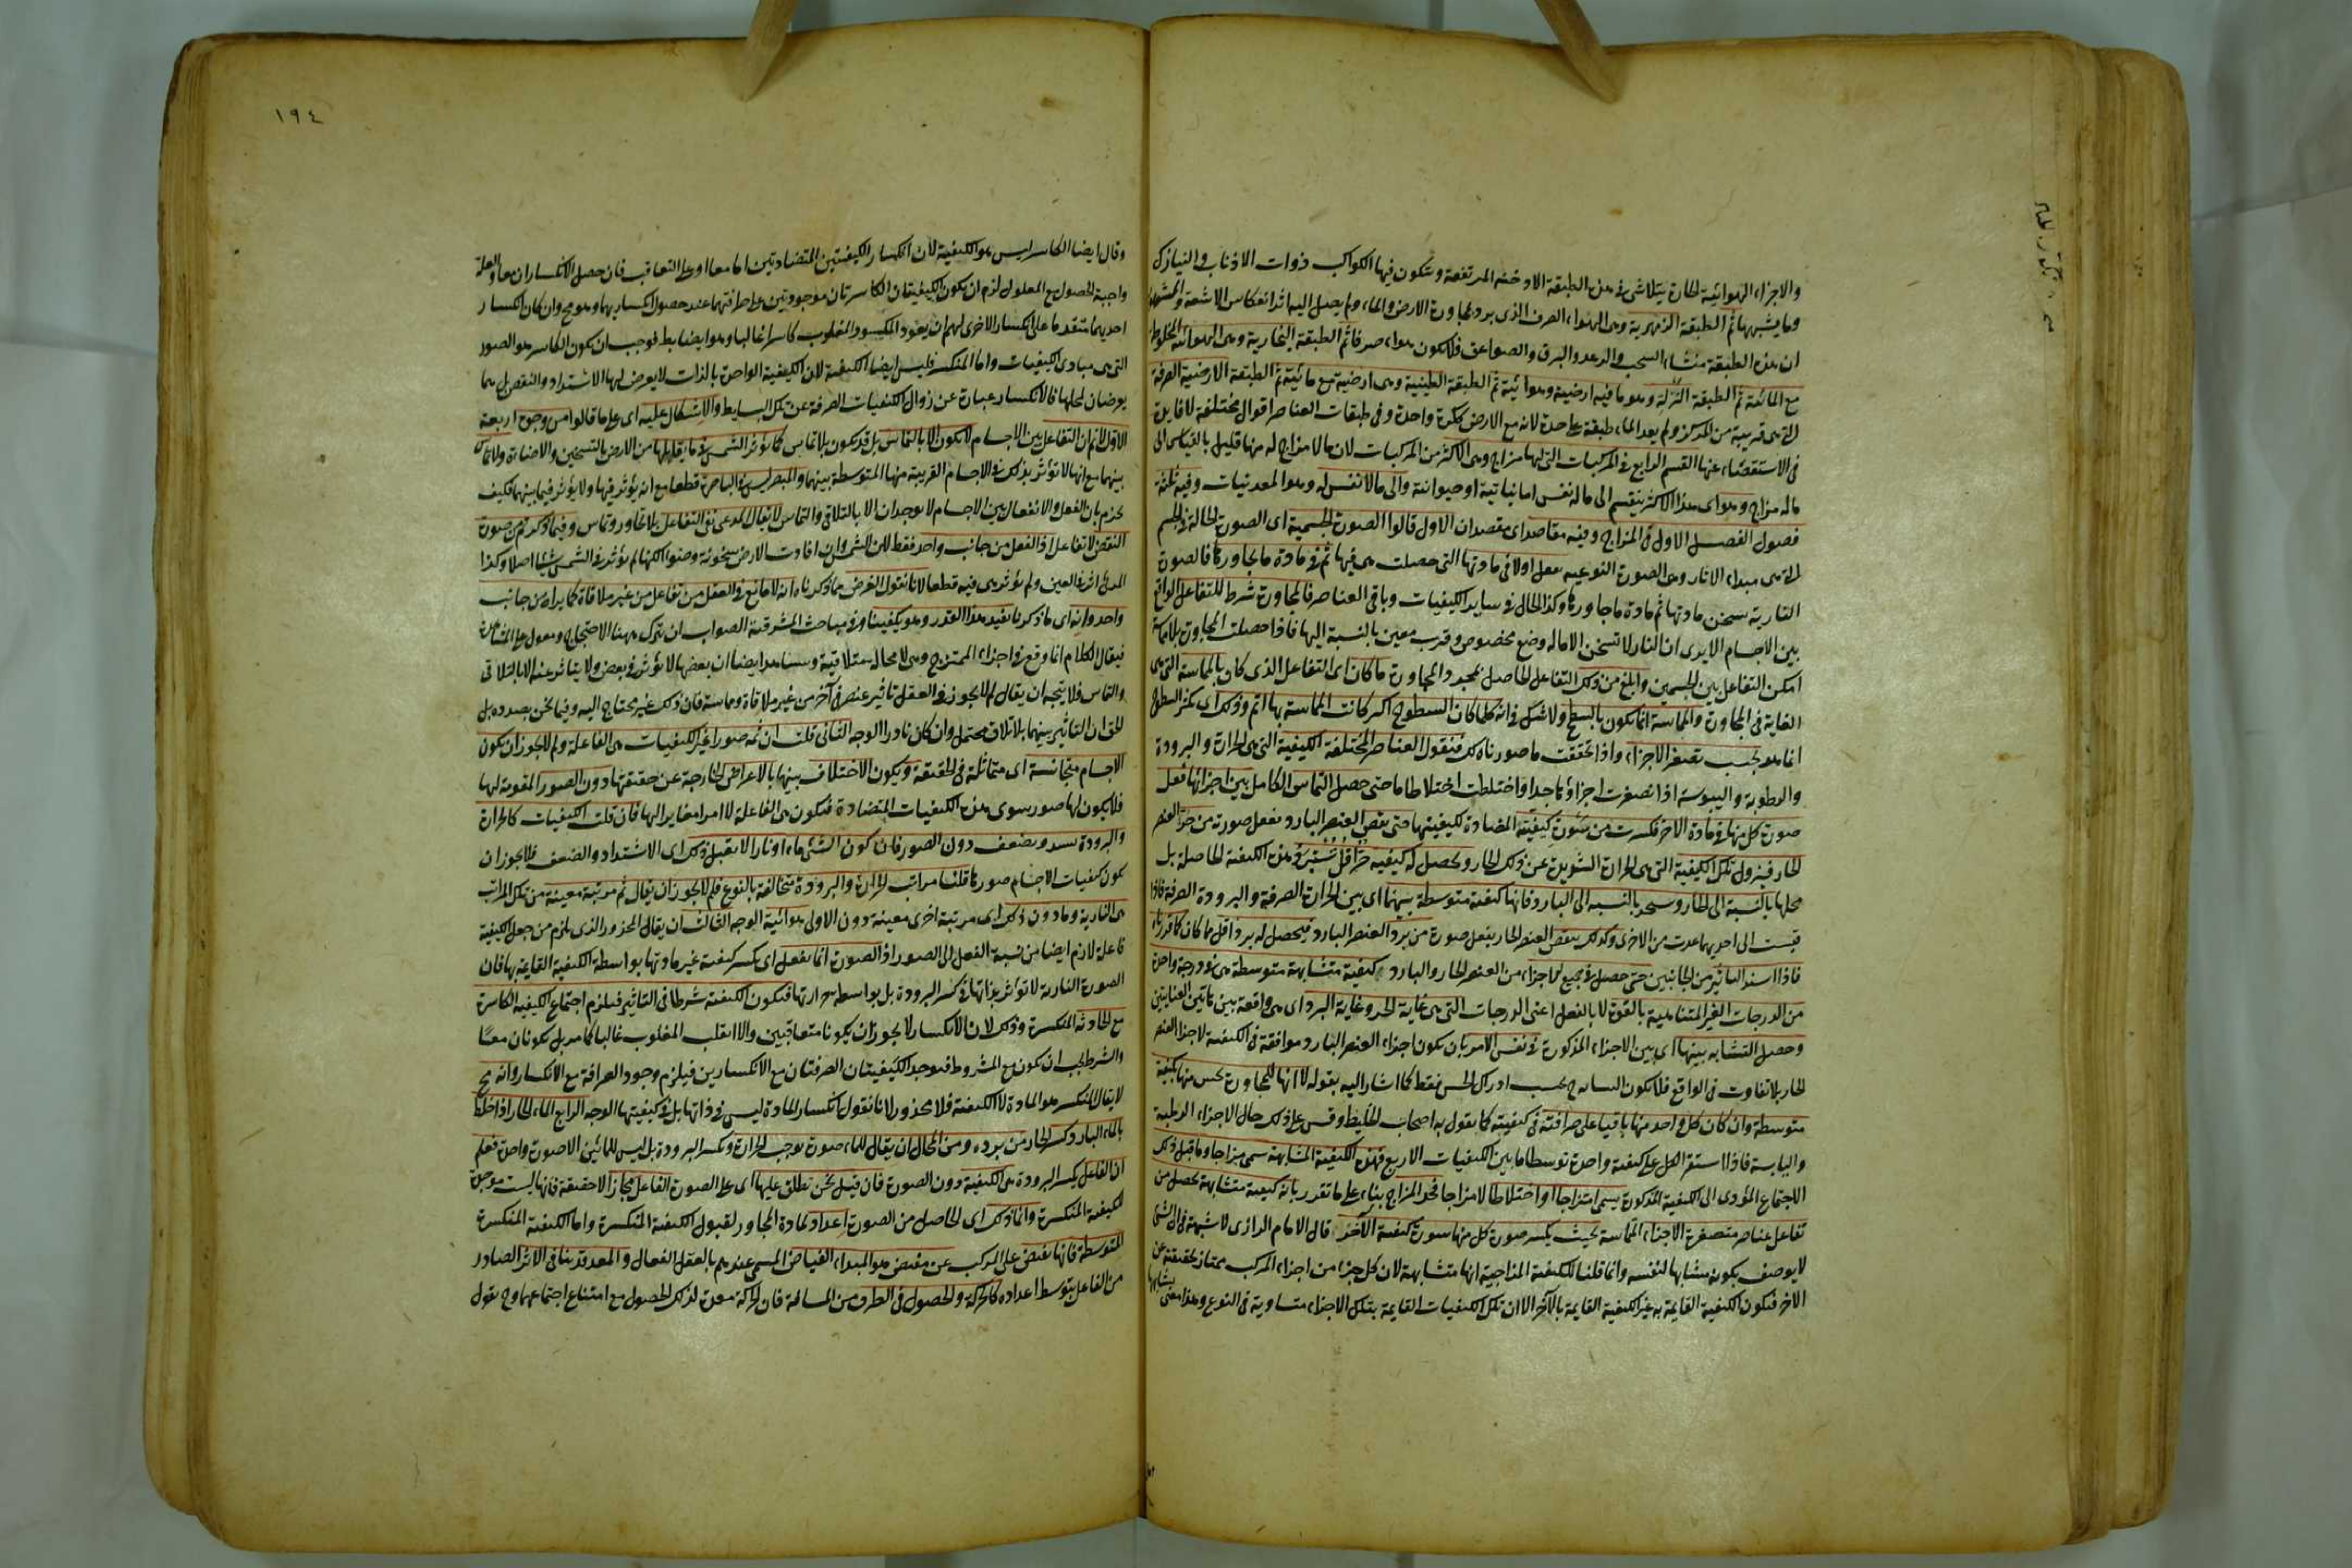 والاجزاء الهوائية الحارة يتلاشى في هذه الطبقة الادخنة المرتفعة ويتكون فيها الكواكب ذوات الاذناب والنيازك
وما يشبهها ثم الطبقة الزمهريرية وهي الهواء الصرف الذي برد بمجاورة الارض والماء ولم يصل اليه اثر انعكاس الاشعة والمشهور
ان هذه الطبقة منشاء السحب والرعد والبرق والصواعق فلا يكون هواء صرفا ثم الطبقة البخارية وهي الهوائية المخلوطة
مع المائية ثم الطبقة وهو ما فيه ارضية وهوائية ثم الطبقة الطينية وهي ارضية مع مائية ثم الطبقة الارضية الصرفة
التي هي قريبة من المركز ولم يعد الماء طبقة على حدة لانه مع الارض ككرة واحدة وفي طبقات العناصر اقوال مختلفة لا فايدة
في الاستقصاء عنها القسم الرابع في المركبات التي لها مزاج وهي الاكثر من المركبات لان ما لا مزاج له منها قليل بالقياس الى
ما له مزاج وهو اي هذا الاكثر ينقسم الى ما له نفس اما نباتية او حيوانية والى ما لا نفس له وهو المعدنيات وفيه ثلثة
فصول الفصل الاول في المزاج وفيه مقاصد اي مقصدان الاول قالوا الصورة الجسمية اي الصورة الحالة في الجسم
التي هي مبداء الاثار وهي الصورة النوعية تفعل اولا في مادتها التي حصلت هي فيها ثم في مادة ما يجاورها فالصورة
النارية تسخن مادتها ثم مادة ما جاورها وكذا الحال في ساير الكيفيات وباقي العناصر فالمجاورة شرط للتفاعل الواقع
بين الاجسام الا يرى ان النار لا تسخن الا ما له وضع مخصوص وقرب معين بالنسبة اليها فاذا حصلت المجاورة بلا مماسة
امكن التفاعل بين الجسمين وابلغ من ذلك التفاعل الحاصل بمجرد المجاورة ما كان اي التفاعل الذي كان بالمماسة التي هي
الغاية في المجاورة والمماسة انما يكون بالسطح ولا شك في انه كلما كان السطوح اكثر كانت المماسة بها اتم وذلك اي تكثر السطوح
انما هو بحسب تصغر الاجزاء واذا تحققت ما صورناه لك فنقول العناصر المختلفة الكيفية التي هي الحرارة والبرودة
والرطوبة واليبوسة اذا تصغرت اجزاؤها جدا واختلطت اختلاطا ما حتى حصل التماس الكامل بين اجزائها فعل
صورة كل منها في مادة الاخر فكسرت من سورة كيفيته المضادة لكيفيتها حتى نقص العنصر البارد بفعل صورته من حر العنصر
الحار فيزول تلك الكيفية التي هي الحرارة الشديدة عن ذلك الحار ويحصل له كيفية حر اقل هذه الكيفية الحاصلة بل
محلها بالنسبة الى الحار ويستحر بالنسبة الى البارد فانها كيفية متوسطة بينهما اي بين الحرارة الصرفة والبرودة الصرفة فاذا
قيست الى احديهما عدت من الاخرى وكذلك ينقص العنصر الحار بفعل صورته من برد العنصر البارد فيحصل له برد اقل مما كان كما قررناه
فاذا التاثير من الجانبين حتى حصل في جميع اجزاء من العنصر الحار والبارد كيفية متشابهة متوسطة هي درجة واحدة
من الدرجات الغير المتناهية بالقوة لا بالفعل اعني الدرجات التي هي غاية الحر وغاية البرد اي هي واقعة بين هاتين الغايتين
وحصل التشابه بينها اي بين الاجزاء المذكورة في نفس الامر بان يكون اجزاء العنصر البارد موافقة في الكيفية لاجزاء العنصر
الحار بلا تفاوت في الواقع فلا يكون التشابه ح بحسب ادراك الحس فقط كما اشار اليه بقوله لا انها للمجاورة يحس منها بكيفية
متوسطة وان كان كل واحد منها باقيا على صرافته في كيفيته كما يقول به اصحاب الخليط وقس على ذلك حال الاجزاء الرطبة
واليابسة فاذا استقر الكل على كيفية واحدة توسطا ما بين الكيفيات الاربع فهذه الكيفية المتشابهة سمى مزاجا وما قبل ذلك
الاجتماع المؤدى الى الكيفية المذكورة يسمى امتزاجا او اختلاطا لا مزاجا فحد المزاج بناء على ما تقرر بانه كيفية متشابهة تحصل من
تفاعل عناصر متصغرة الاجزاء المماسة بحيث يكسر صورة كل منها سورة كيفية الآخر قال الامام الرازي لا شبهة في ان الشئ
لا يوصف بكونه مشابها لنفسه وانما قلنا للكيفية المزاجية انها متشابهة لان كل جزء من اجزاء المركب ممتاز بحقيقته عن
الاخر فتكون الكيفية القايمة به غير الكيفية القايمة بالآخر الا ان تلك الكيفيات القايمة بتلك الاجزاء متساوية في النوع وهذا معنى تشابهها
١٩٤
وقال ايضا الكاسر ليس هو الكيفية لان انكسار الكيفيتين المتضادتين اما معا او على التعاقب فان حصل الانكساران معا والعلة
واجبة الحصول مع المعلول لزم ان يكون الكيفيتان الكاسرتان موجودتين على صرافتهما عند حصول انكساريهما وهو مح وان كان انكسار
احديهما متقدما على انكسار الاخرى لزم ان يعود المكسور المغلوب كاسرا غالبا وهو ايضا بط فوجب ان يكون الكاسر هو الصور
التي هي مبادى الكيفيات واما المنكسر فليس ايضا الكيفية لان الكيفية الواحدة بالذات لا يعرض لها الاشتداد والتنقص بل هما
يعرضان لمحلها فالانكسار عبارة عن زوال الكيفيات الصرفة عن تلك البسايط والاشكال عليه اي على ما قالوا من وجوه اربعة
الاول لا نم ان التفاعل بين الاجسام لا يكون الا بالتماس بل قد يكون بلا تماس كما تؤثر الشمس فيما يقابلها من الارض بالتسخين والاضاءة ولا تماس
بينهما مع انها لا تؤثر بذلك في الاجسام القريبة منها المتوسطة بينهما والمبصر ليس في الباصرة قطعا مع انه يؤثر فيها ولا يؤثر فيما بينهما فكيف
يجزم بان الفعل والانفعال بين الاجسام لا يوجدان الا بالتلاقي والتماس لا يقال المدعى نفي التفاعل بلا تجاور وتماس وفيما ذكرتم من صورة
النقض لا تفاعل اذ الفعل من جانب واحد فقط لان الشمس وان افادت الارض سخونة وضوءا لكنها لم تؤثر في الشمس شيئا اصلا وكذا
المرئى اثر في العين ولم يؤثر هي فيه قطعا لانا نقول الغرض مما ذكرناه انه لا مانع في العقل من تفاعل من غير ملاقاة كما يراه من جانب
واحد وانه اي ما ذكرنا يفيد هذا القدر وهو يكفينا وفي مباحث المشرقية الصواب ان يترك ههنا الاحتجاج ويعول على المشاهدة
فيقال الكلام انما وقع في اجزاء الممتزج وهي لا محالة متلاقية وشاهد ايضا ان بعضها لا يؤثر في بعض ولا يتاثر عنه الا بالتلاقي
والتماس فلا يتجه ان يقال لم لا يجوز في العقل تاثير عنصر في آخر من غير ملاقاة ومماسة فان ذلك غير محتاج اليه وفيما نحن بصدده بل
الحق ان التاثير بينهما بلا تلاق محتمل وان كان نادرا الوجه الثاني قلت ان ثمه صورا غير الكيفيات هي الفاعلة ولم لا يجوز ان يكون
الاجسام متجانسة اي متماثلة في الحقيقة ويكون الاختلاف بينها بالاعراض الخارجة عن حقيقتها دون الصور المقومة لها
فلا يكون لها صور سوى هذه الكيفيات المتضادة فتكون هي الفاعلة لا امرا مغايرا لها فان قلت الكيفيات كالحرارة
والبرودة تشتد وتضعف دون الصور فان كون الشئ ماء او نارا لا يقبل ذلك اي الاشتداد والضعف فلا يجوز ان
يكون كيفيات الاجسام صورها قلنا مراتب الحرارة والبرودة متخالفة بالنوع فلم لا يجوز ان يقال ثم مرتبة معينة من تلك المراتب
هي النارية وما دون ذلك اي مرتبة اخرى معينة دون الاولى هوائية الوجه الثالث ان يقال المحذور الذي يلزم من جعل الكيفية
فاعلة لازم ايضا من نسبة الفعل الى الصور اذ الصورة انما تفعل اي يكسر كيفية غير مادتها بواسطة الكيفية القايمة بها فان
الصورة النارية لا تؤثر بذاتها في كسر البرودة بل بواسطة حرارتها فتكون الكيفية شرطا في التاثير فيلزم اجتماع الكيفية الكاسرة
مع الحادثة المنكسرة وذلك لان الانكسار لا يجوز ان يكونا متعاقبين والا انقلب المغلوب غالبا كما مر بل يكونان معا
والشرط يجب ان يكون مع المشروط فتوجد الكيفيتان الصرفتان مع الانكسارين فيلزم وجود الصرافة مع الانكسار وانه مح
لا يقال المنكسر هو المادة لا الكيفية فلا محذور لانا نقول انكسار المادة ليس في ذاتها بل في كيفيتها الوجه الرابع الماء الحار اذا خلط
بالماء البارد كسر الحار من برده ومن المحال ان يقال للماء صورة توجب الحرارة وتكسر البرودة بل ليس للمائين الا صورة واحدة فعلم
ان الفاعل يكسر البرودة هي الكيفية دون الصورة فان قيل نحن نطلق عليها اي على الصورة الفاعل مجازا لا حقيقة فانها ليست موجدة
للكيفية المنكسرة وانما ذلك اي الحاصل من الصورة اعداد لمادة المجاور لقبول الكيفية المنكسرة واما الكيفية المنكسرة
المتوسطة فانها تفيض على المركب عن مفيض هو المبداء الفياض المسمى عندهم بالعقل الفعال والمعد قد ينافي الاثر الصادر
من الفاعل بتوسط اعداده كالحركة والحصول في الطرف من المسافة فان الحركة معدة لذلك الحصول مع امتناع اجتماعهما وح نقول